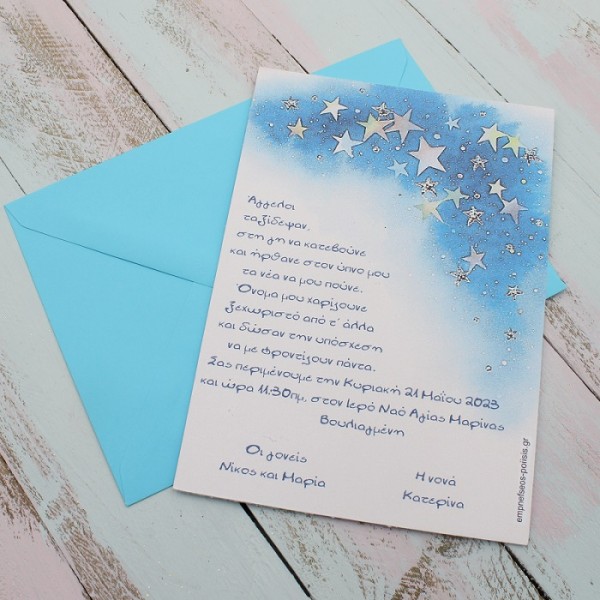 Άγγελοι
ταξίδεψαν.
στη γη να κατεβούνε
και ήρθανε στον ύπνο μου
τα νέα να μου πούνε.
Όνομα μου χαρίζουνε
ξεχωριστό από τ' άλλα
και δώσαν την υπόσχεση
να με φροντίζουν πάντα.
Σας περιμένουμε την Κυριακή 21 Μαΐου 2023
και ώρα 11.30πμ, στον Ιερό Ναό Αγίας Μαρίνας
Βουλιαγμένη
Οι γονείς
Νίκος και Μαρία
Η νονά
Κατερίνα
empnefseos-porisis.gr